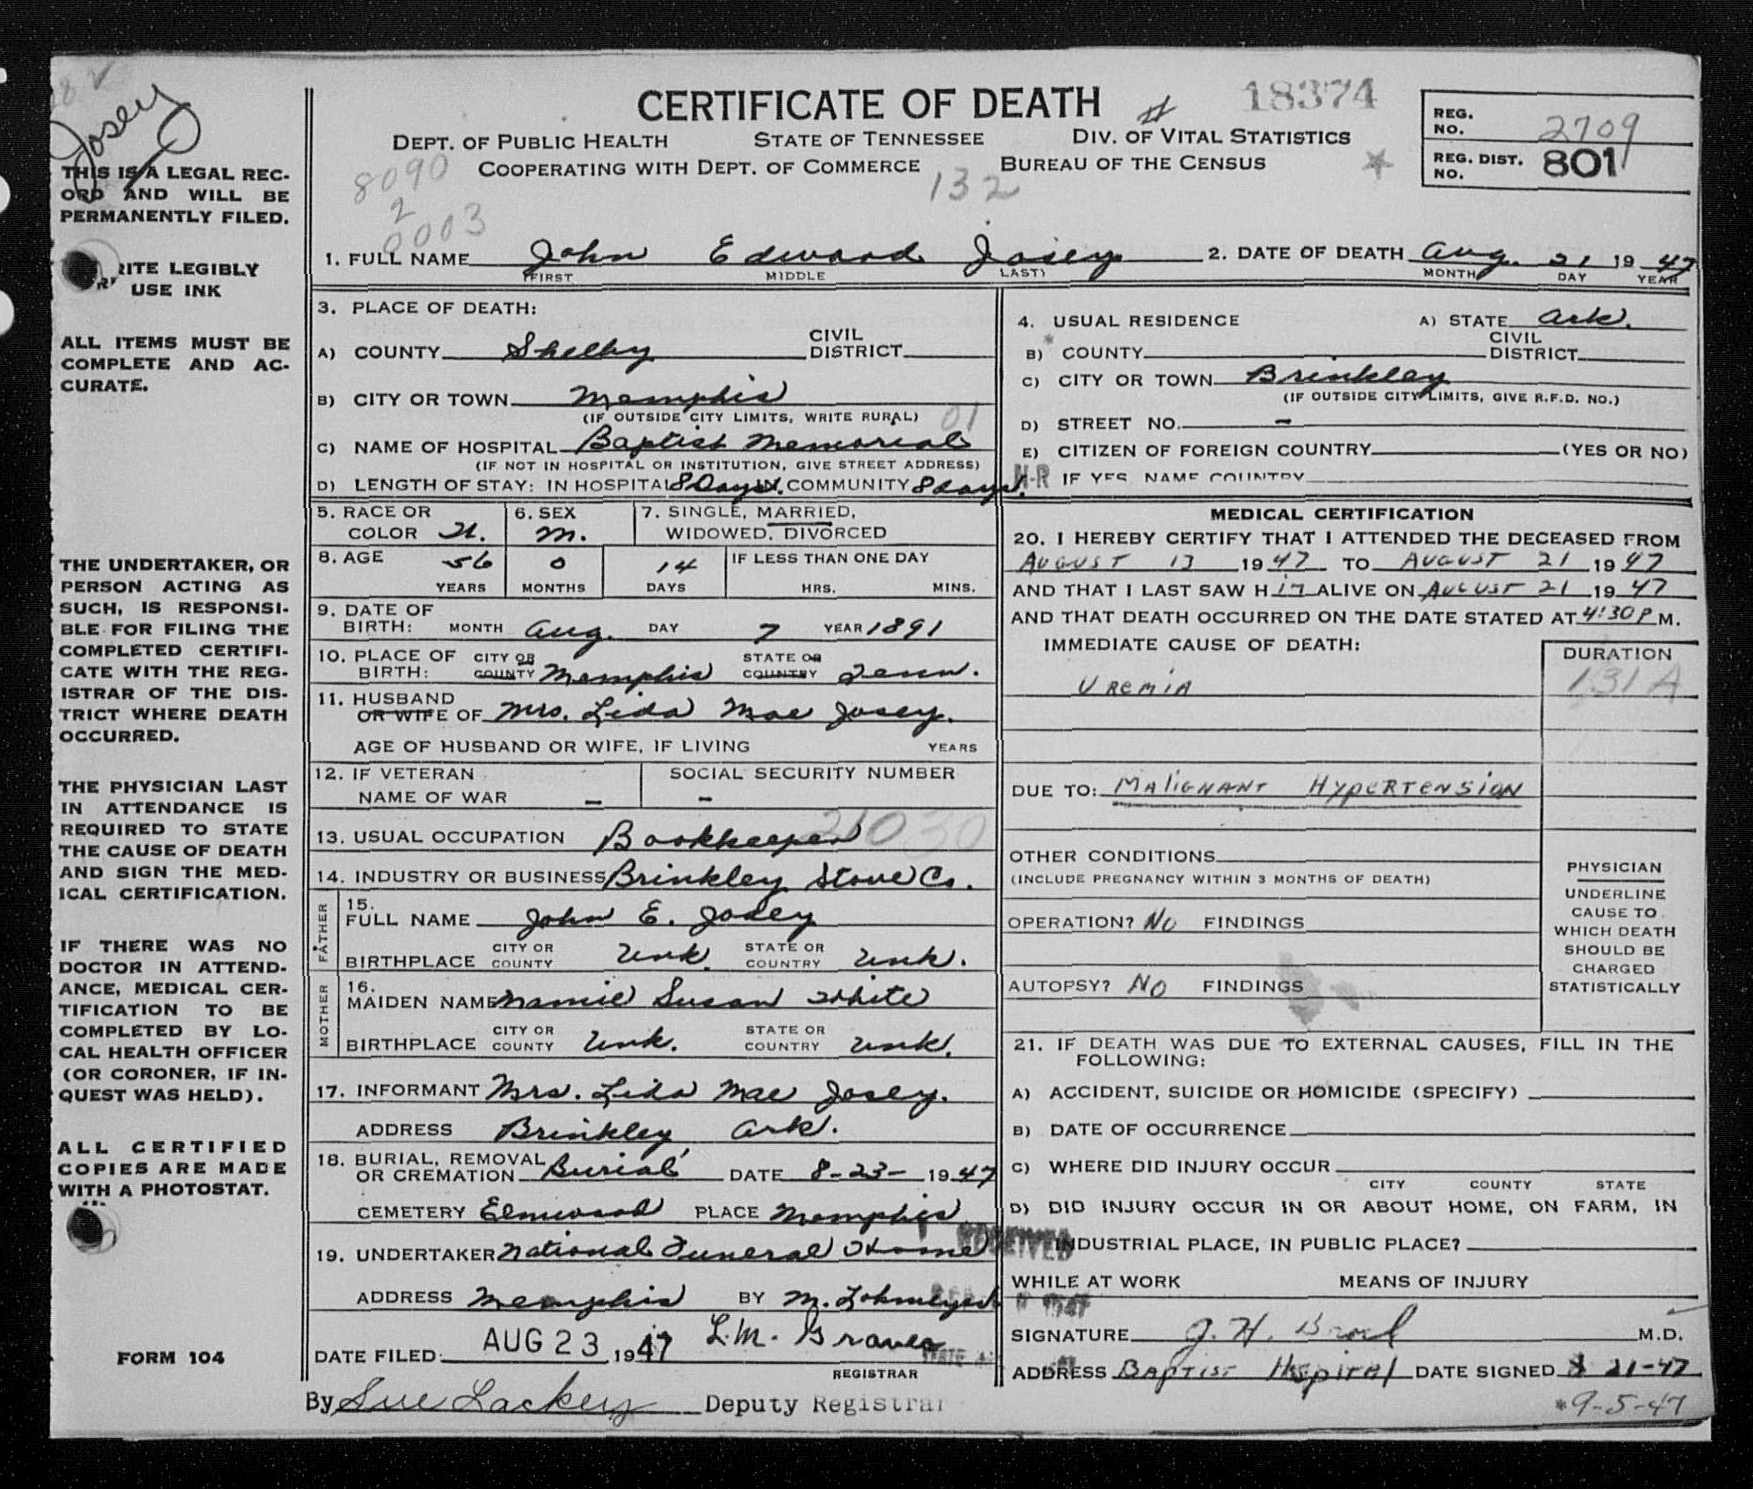 Josey
CERTIFICATE OF DEATH
18374
DEPT. OF PUBLIC HEALTH STATE OF TENNESSEE DIV. OF VITAL STATISTICS
COOPERATING WITH DEPT. OF COMMERCE BUREAU OF THE CENSUS
8090
2
0003
132
REG. NO. 2709
REG. DIST. NO. 801
THIS IS A LEGAL REC-
ORD AND WILL BE
PERMANENTLY FILED.
RITE LEGIBLY
USE INK
ALL ITEMS MUST BE
COMPLETE AND AC-
CURATE.
THE UNDERTAKER, OR
PERSON ACTING AS
SUCH, IS RESPONSI-
BLE FOR FILING THE
COMPLETED CERTIFI-
CATE WITH THE REG-
ISTRAR OF THE DIS-
TRICT WHERE DEATH
OCCURRED.
THE PHYSICIAN LAST
IN ATTENDANCE IS
REQUIRED TO STATE
THE CAUSE OF DEATH
AND SIGN THE MED-
ICAL CERTIFICATION.
IF THERE WAS NO
DOCTOR IN ATTEND-
ANCE, MEDICAL CER-
TIFICATION TO BE
COMPLETED BY LO-
CAL HEALTH OFFICER
(OR CORONER, IF IN-
QUEST WAS HELD).
ALL CERTIFIED
COPIES ARE MADE
WITH A PHOTOSTAT.
FORM 104
1. FULL NAME John Edward Josey 2. DATE OF DEATH Aug. 21 19 47
(FIRST MIDDLE LAST) MONTH DAY YEAR
3. PLACE OF DEATH:
A) COUNTY Shelby CIVIL DISTRICT
B) CITY OR TOWN Memphis
(IF OUTSIDE CITY LIMITS, WRITE RURAL) 01
C) NAME OF HOSPITAL Baptist Memorial
(IF NOT IN HOSPITAL OR INSTITUTION, GIVE STREET ADDRESS)
D) LENGTH OF STAY: IN HOSPITAL 8 Days. IN COMMUNITY 8 days.
4. USUAL RESIDENCE A) STATE Ark.
B) COUNTY CIVIL DISTRICT
C) CITY OR TOWN Brinkley
(IF OUTSIDE CITY LIMITS, GIVE R.F.D. NO.)
D) STREET NO. -
E) CITIZEN OF FOREIGN COUNTRY (YES OR NO)
N-R IF YES, NAME COUNTRY
5. RACE OR COLOR W. 6. SEX M. 7. SINGLE, MARRIED, WIDOWED, DIVORCED
8. AGE 56 YEARS 0 MONTHS 14 DAYS IF LESS THAN ONE DAY HRS. MINS.
9. DATE OF BIRTH: MONTH Aug. DAY 7 YEAR 1891
10. PLACE OF BIRTH: CITY OR COUNTY Memphis STATE OR COUNTRY Tenn.
11. HUSBAND OR WIFE OF Mrs. Lida Mae Josey.
AGE OF HUSBAND OR WIFE, IF LIVING YEARS
12. IF VETERAN NAME OF WAR - SOCIAL SECURITY NUMBER -
13. USUAL OCCUPATION Bookkeeper 21030
14. INDUSTRY OR BUSINESS Brinkley Stave Co.
FATHER
15. FULL NAME John E. Josey
BIRTHPLACE CITY OR COUNTY Unk. STATE OR COUNTRY Unk.
MOTHER
16. MAIDEN NAME Mamie Susan White
BIRTHPLACE CITY OR COUNTY Unk. STATE OR COUNTRY Unk.
17. INFORMANT Mrs. Lida Mae Josey.
ADDRESS Brinkley Ark.
18. BURIAL, REMOVAL OR CREMATION Burial DATE 8-23- 19 47
CEMETERY Elmwood PLACE Memphis
19. UNDERTAKER National Funeral Home
ADDRESS Memphis BY M.
DATE FILED: AUG 23 1947 L.M. Graves
REGISTRAR
By Sue Lackey Deputy Registrar
MEDICAL CERTIFICATION
20. I HEREBY CERTIFY THAT I ATTENDED THE DECEASED FROM
AUGUST 13 19 47 TO AUGUST 21 19 47
AND THAT I LAST SAW HIM ALIVE ON AUGUST 21 19 47
AND THAT DEATH OCCURRED ON THE DATE STATED AT 4:30 P M.
IMMEDIATE CAUSE OF DEATH: DURATION
Uremia 131A
DUE TO: Malignant Hypertension
OTHER CONDITIONS
(INCLUDE PREGNANCY WITHIN 3 MONTHS OF DEATH)
OPERATION? No FINDINGS
AUTOPSY? No FINDINGS
PHYSICIAN
UNDERLINE
CAUSE TO
WHICH DEATH
SHOULD BE
CHARGED
STATISTICALLY
21. IF DEATH WAS DUE TO EXTERNAL CAUSES, FILL IN THE
FOLLOWING:
A) ACCIDENT, SUICIDE OR HOMICIDE (SPECIFY)
B) DATE OF OCCURRENCE
C) WHERE DID INJURY OCCUR
CITY COUNTY STATE
D) DID INJURY OCCUR IN OR ABOUT HOME, ON FARM, IN
INDUSTRIAL PLACE, IN PUBLIC PLACE?
RECEIVED
WHILE AT WORK MEANS OF INJURY
SIGNATURE J. H. M.D.
ADDRESS Baptist Hospital DATE SIGNED 8 21-47
*9-5-47